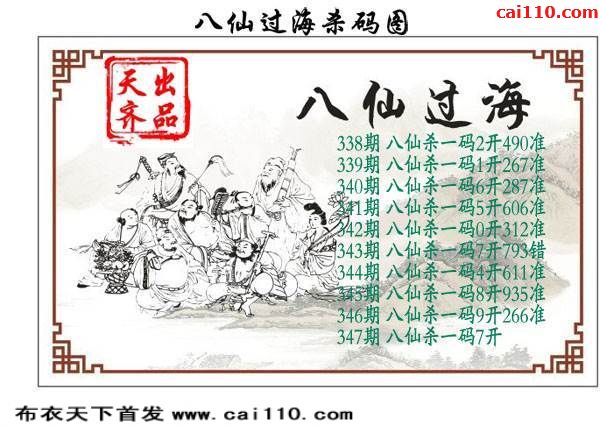 八仙过海杀码图
cai110.com
天出
齐品
八仙过海
338期 八仙杀一码2开490准
339期 八仙杀一码1开267准
340期 八仙杀一码6开287准
341期 八仙杀一码5开606准
342期 八仙杀一码0开312准
343期 八仙杀一码7开793错
344期 八仙杀一码4开611准
345期 八仙杀一码8开935准
346期 八仙杀一码9开266准
347期 八仙杀一码7开
布衣天下首发 www.cai110.com